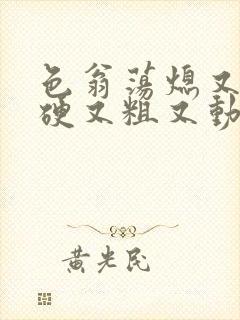 色翁荡熄又
硬又粗又動
黃光民